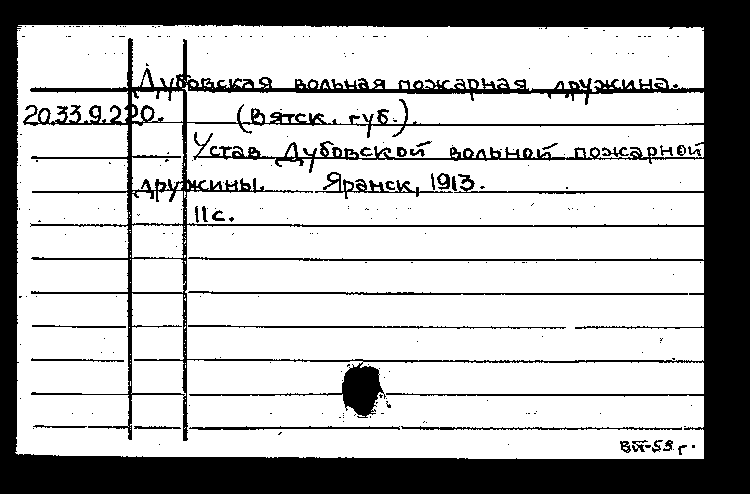 Дубовская вольная пожарная дружина.
20.33.9.220. (Вятск. губ.).
Устав Дубовской вольной пожарной
дружины. Яранск, 1913.
11 с.